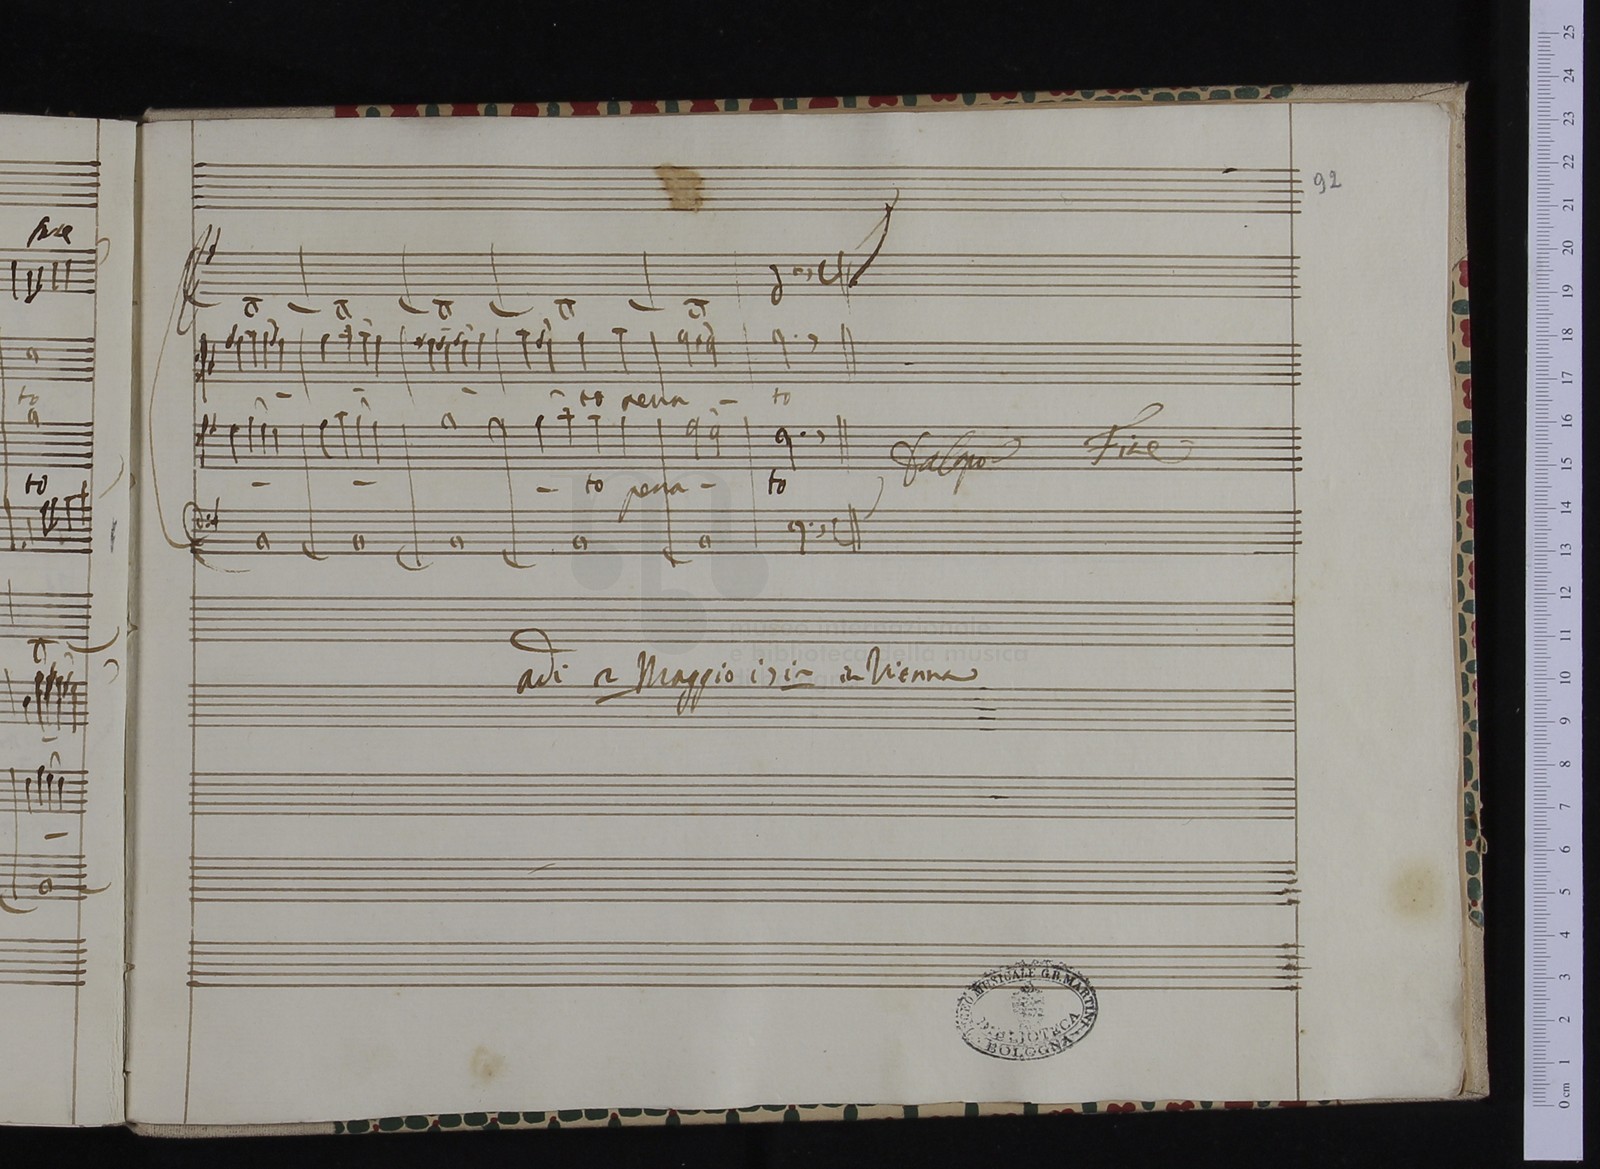 fine
92
to
to pena - to
to
- to pena - to
Da Capo Fine
museo internazionale
e biblioteca della musica
adi 2 Maggio in Vienna
LICEO MUSICALE G.B. MARTINI
BIBLIOTECA
BOLOGNA
25
24
23
22
21
20
19
18
17
16
15
14
13
12
11
10
9
8
7
6
5
4
3
2
1
0 cm